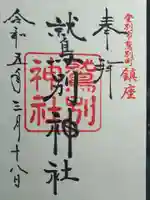 登別市鷲別町鎮座
奉拝
鷲別神社
鷲別神社
令和五年三月十八日